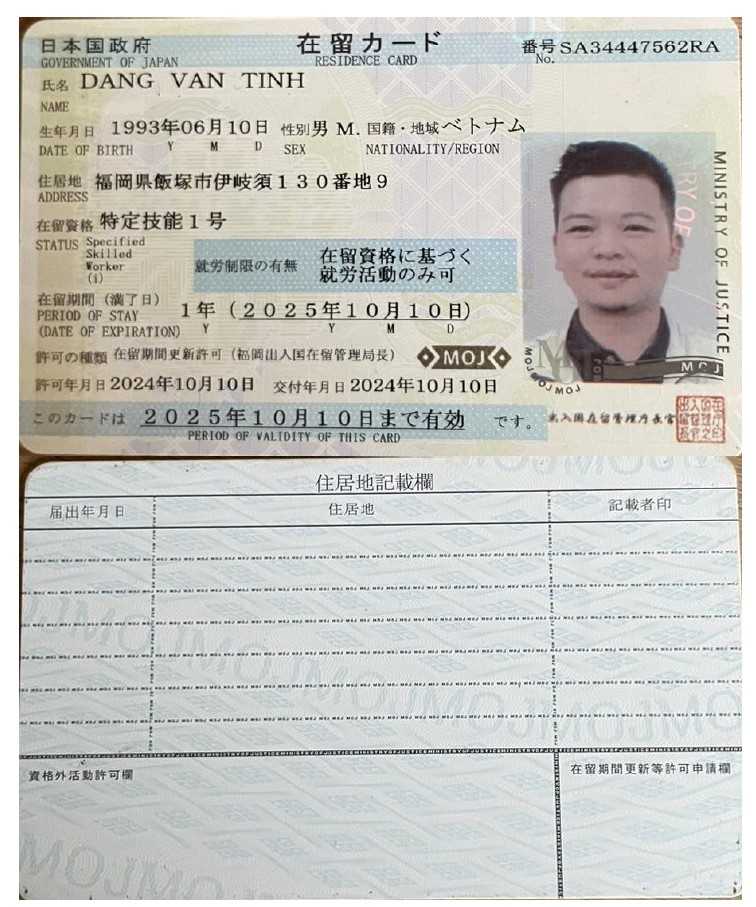 日本国政府 在留カード 番号 SA34447562RA
GOVERNMENT OF JAPAN RESIDENCE CARD No.
氏名 DANG VAN TINH
NAME
生年月日 1993年06月10日 性別 男 M. 国籍・地域 ベトナム
DATE OF BIRTH Y M D SEX NATIONALITY/REGION
住居地 福岡県飯塚市伊岐須130番地9
ADDRESS
在留資格 特定技能1号
STATUS Specified
Skilled
Worker
(i)
就労制限の有無 在留資格に基づく
就労活動のみ可
在留期間(満了日) 1年(2025年10月10日)
PERIOD OF STAY Y Y M D
(DATE OF EXPIRATION)
許可の種類 在留期間更新許可(福岡出入国在留管理局長)
MOJ
許可年月日 2024年10月10日 交付年月日 2024年10月10日
このカードは 2025年10月10日まで有効 です。
PERIOD OF VALIDITY OF THIS CARD
出入国在留管理庁長官
MINISTRY OF JUSTICE
MOJ
MOJMOJMOJ
住居地記載欄
届出年月日 住居地 記載者印
資格外活動許可欄 在留期間更新等許可申請欄